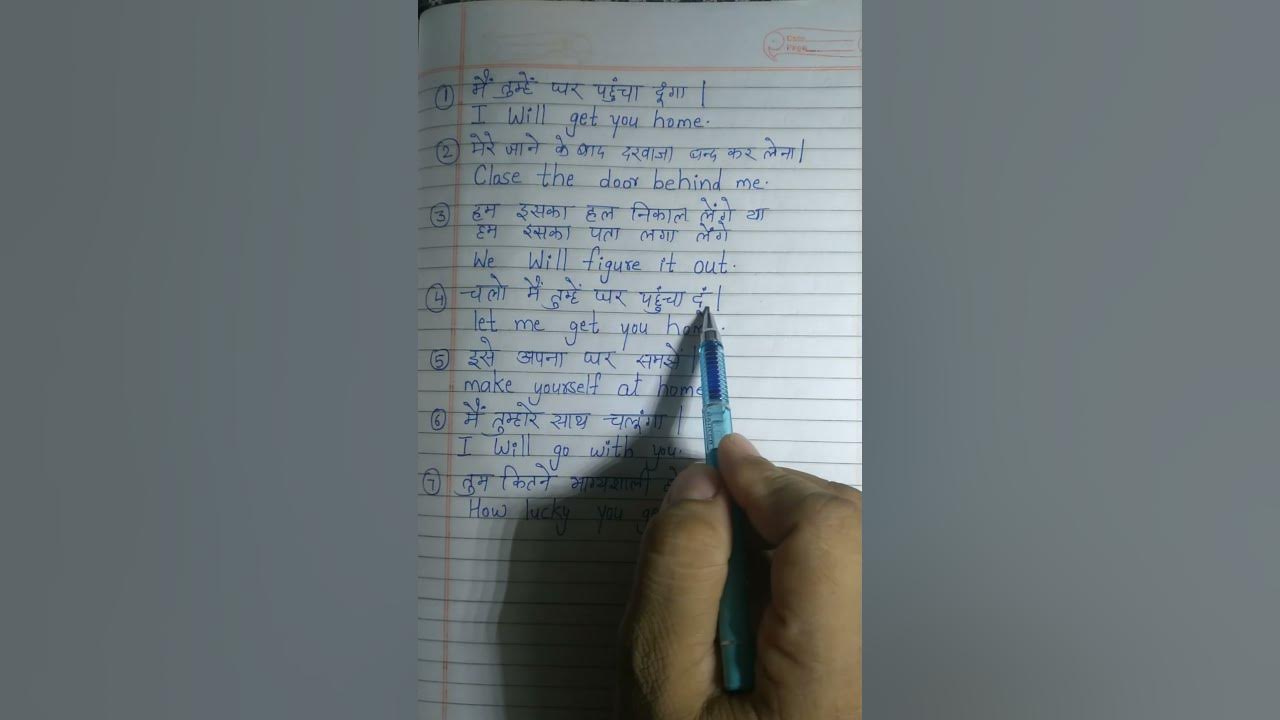 Date
Page
① मैं तुम्हें घर पहुंचा दूंगा |
I Will get you home.
② मेरे जाने के बाद दरवाजा बन्द कर लेना |
Close the door behind me.
③ हम इसका हल निकाल लेंगे या
हम इसका पता लगा लेंगे
We Will figure it out.
④ चलो मैं तुम्हें घर पहुंचा दूं |
let me get you home.
⑤ इसे अपना घर समझें |
make yourself at home
⑥ मैं तुम्हारे साथ चलूंगा |
I Will go with you.
⑦ तुम कितने भाग्यशाली
How lucky you